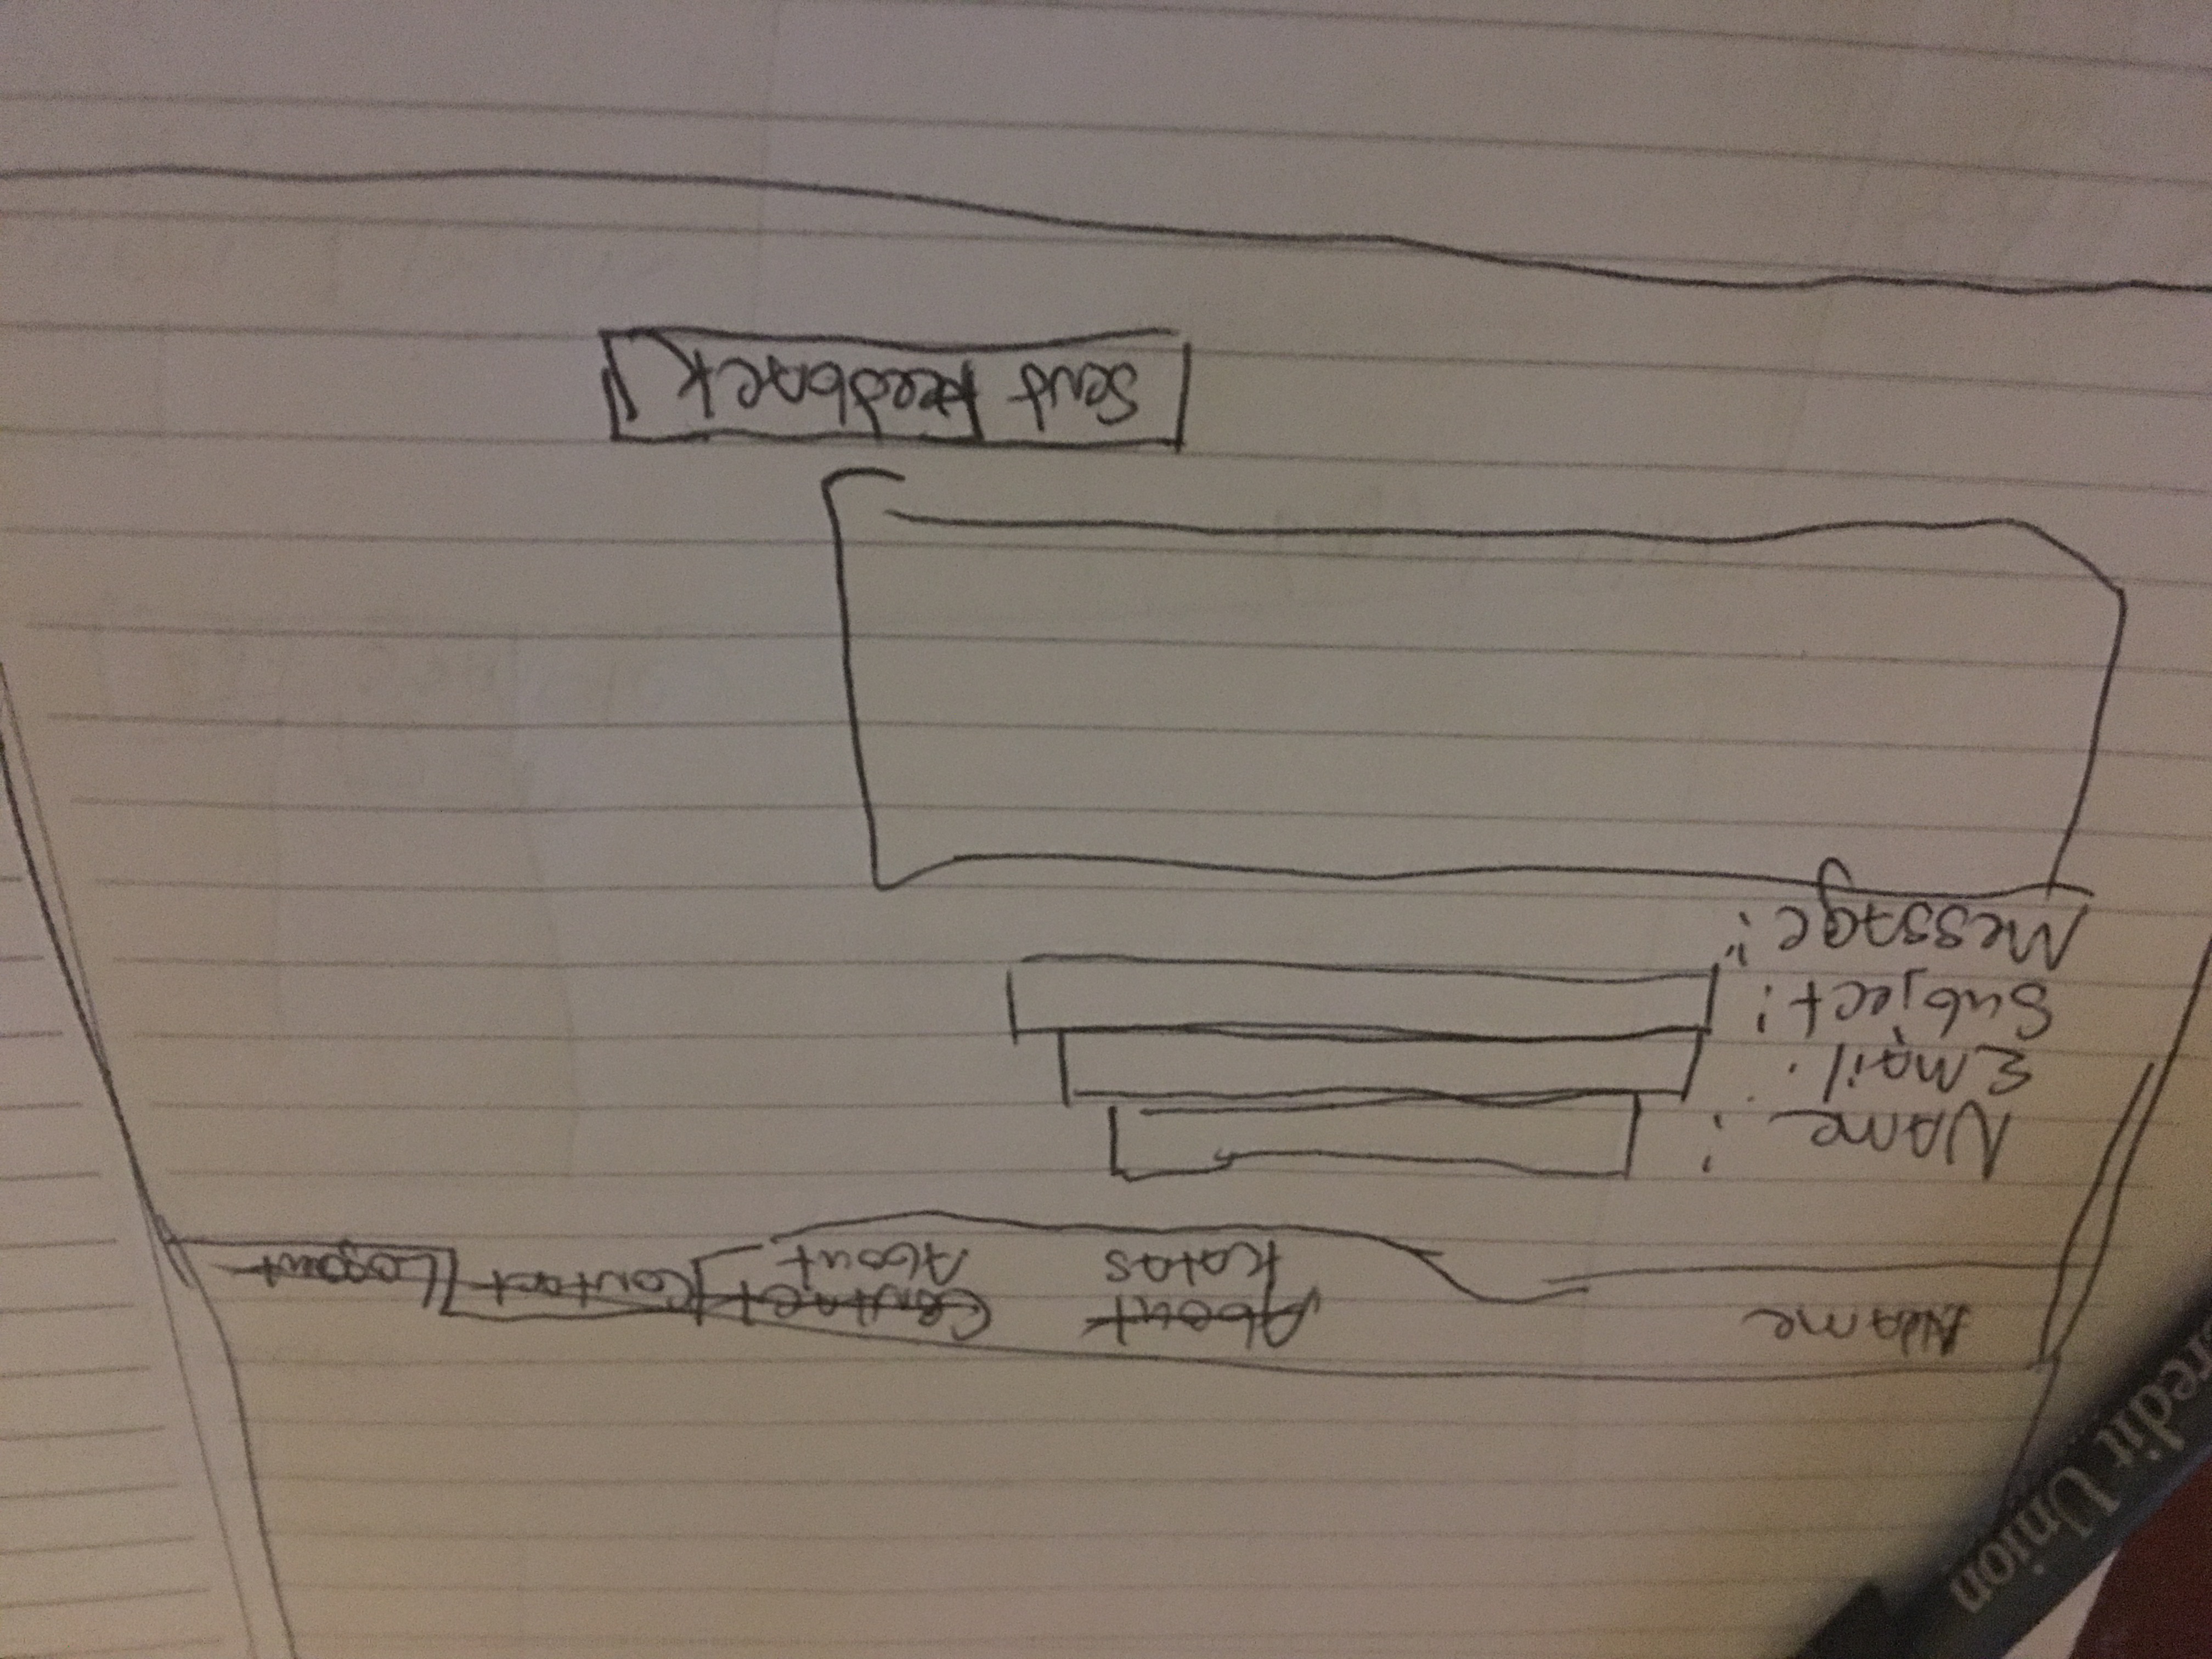 Credit Union
Name About Contact Contact Logout
Katas About
Name :
Email :
Subject :
Message :
Sent Feedback